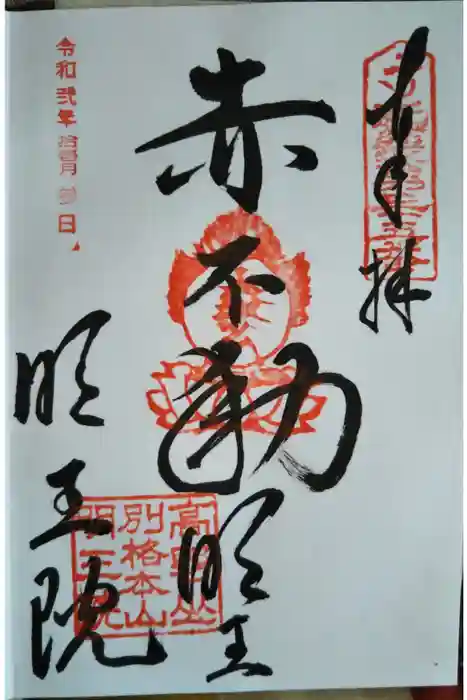 奉拝
赤不動明王
明王院
高野山
別格本山
明王院
令和弐年拾壱月参日